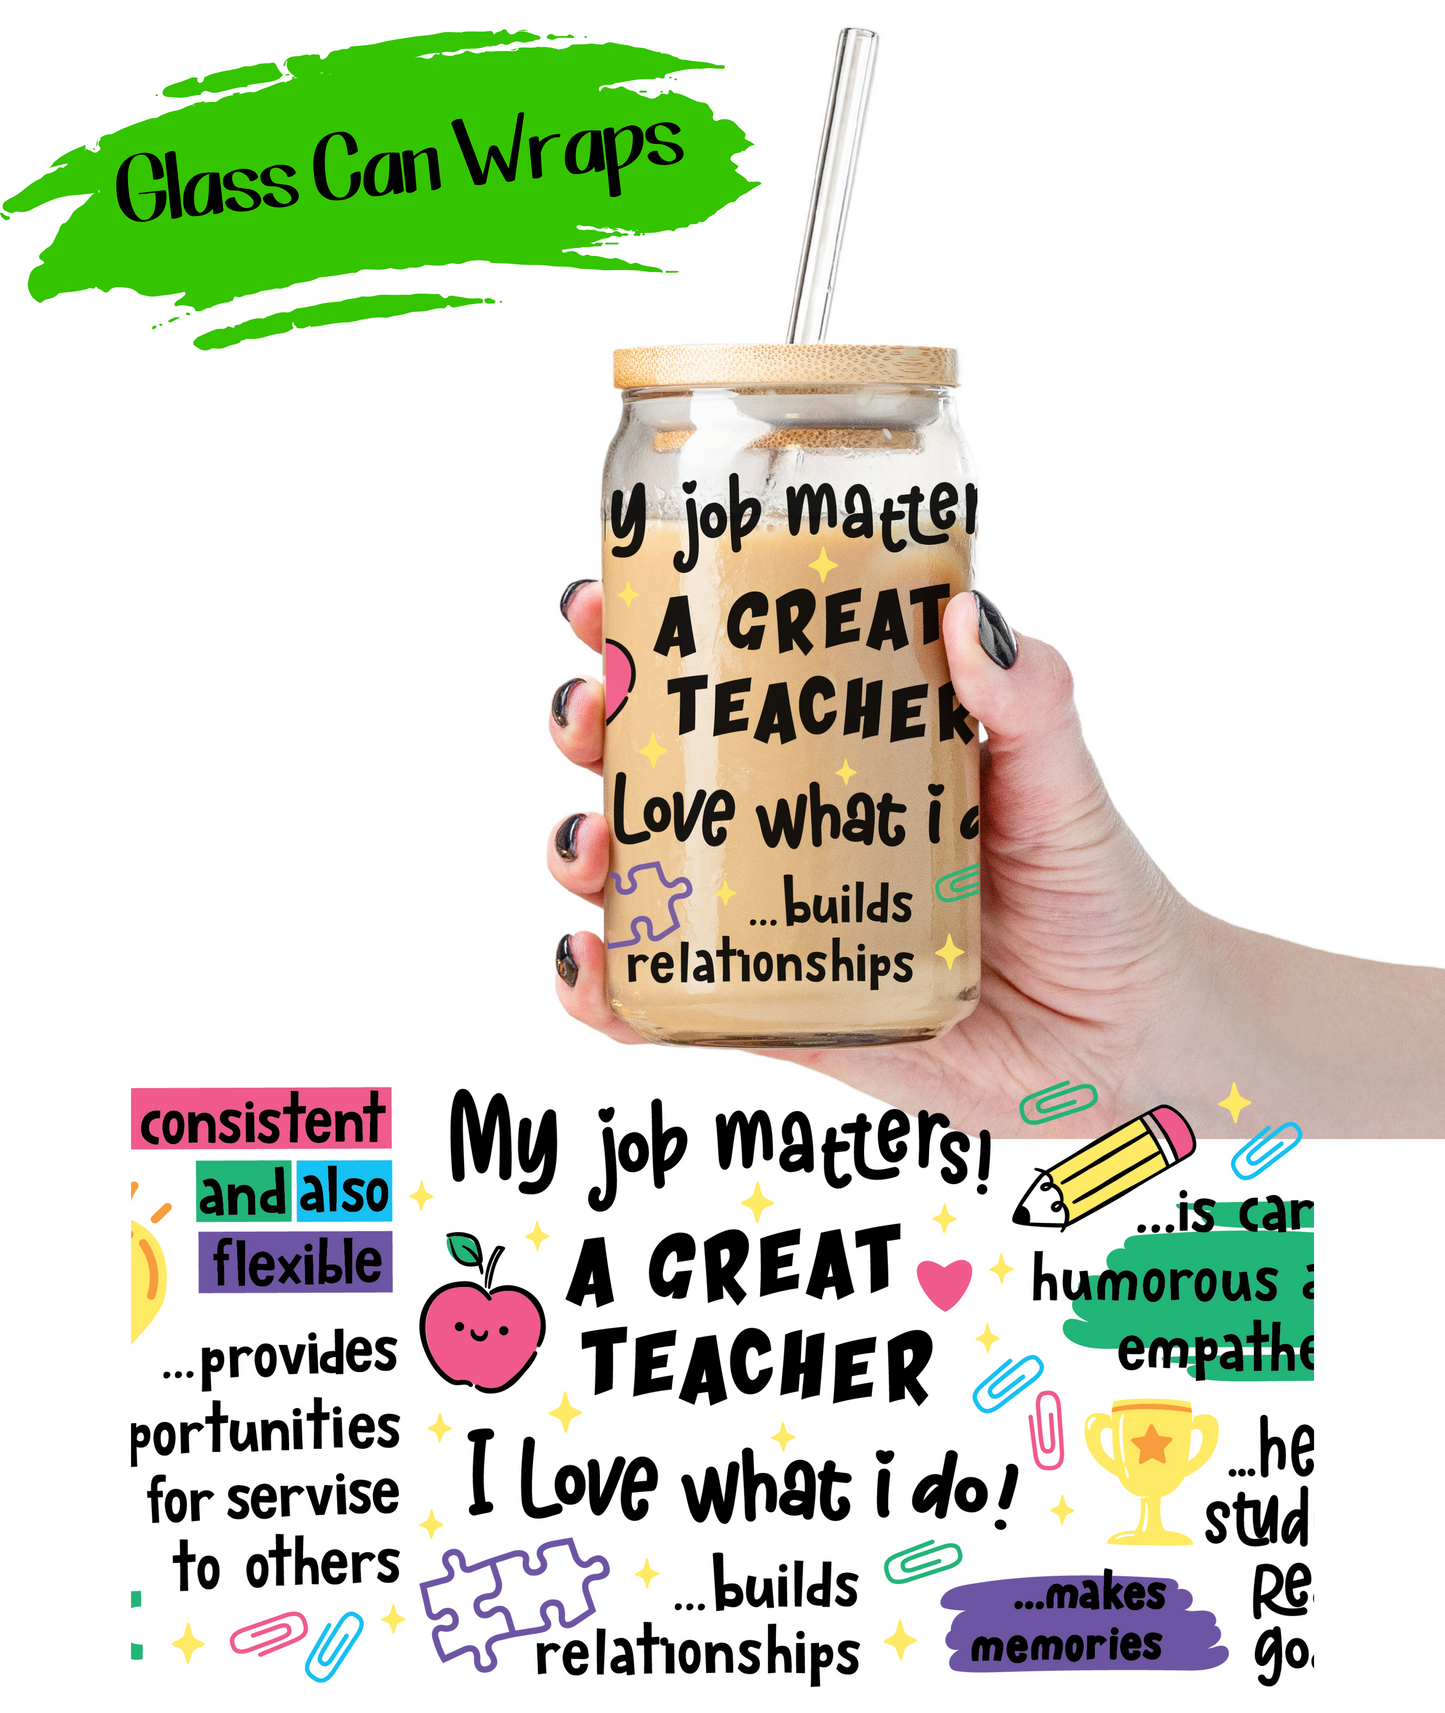 Glass Can Wraps
y job matter
A GREAT
TEACHER
Love what i d
...builds
relationships
consistent
and also
flexible
...provides
portunities
for servise
to others
My job matters!
A GREAT
TEACHER
I Love what i do!
...builds
relationships
...is car
humorous a
empathe
...he
stud
Re
go
...makes
memories